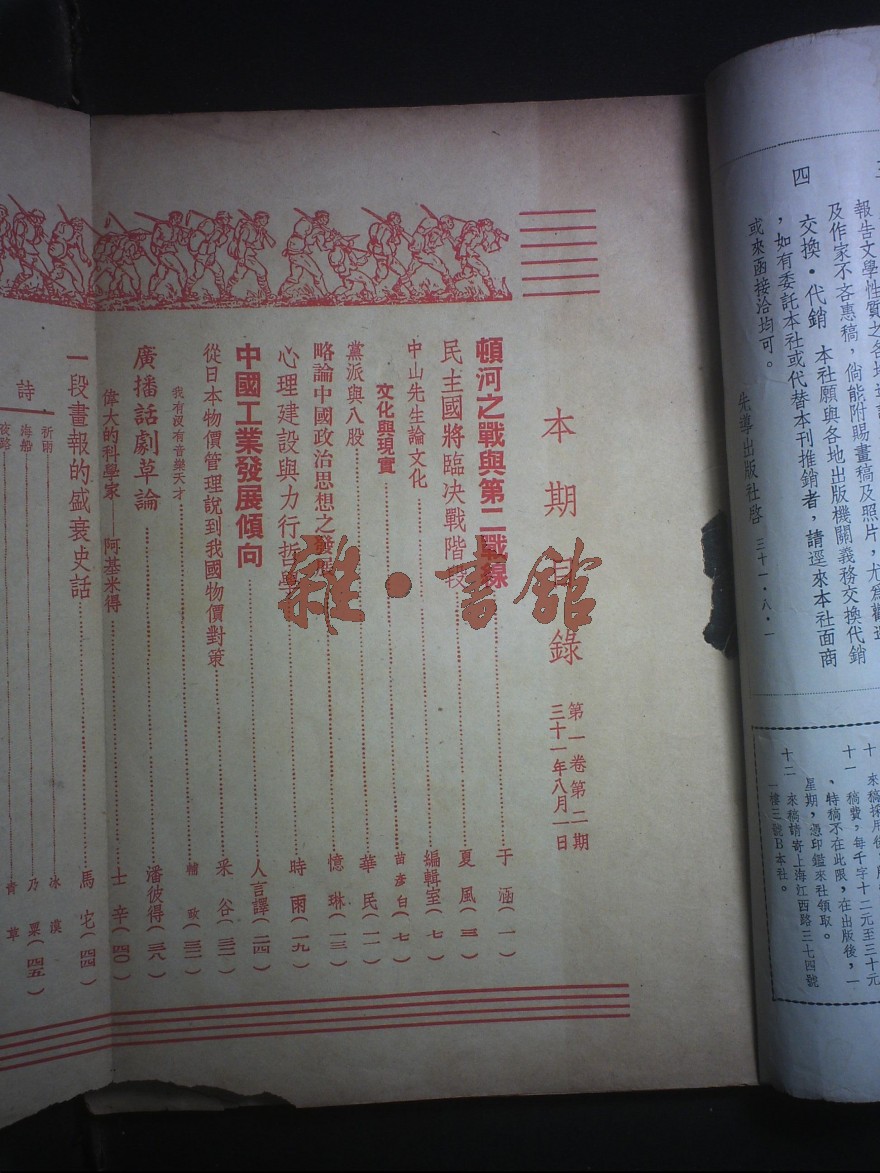 四
交換・代銷 本社願與各地出版機關義務交換代銷
，如有委託本社或代替本刊推銷者，請逕來本社面商
或來函接洽均可。
先導出版社啓 三十一・八・一
及作家不吝惠稿，倘能附賜畫稿及照片，尤爲歡迎
十一 稿費，每千字十二元至三十元
、特稿不在此限，在出版後，一
星期，憑印鑑來社領取。
十二 來稿請寄上海江西路三七四號
一樓三號B本社。
本期目錄
第一卷第二期
三十一年八月一日
頓河之戰與第二戰線 于涵(一)
民主國將臨決戰階段 夏風(三)
中山先生論文化 編輯室(七)
文化與現實 苗彥白(七)
黨派與八股 華民(一一)
略論中國政治思想之發展 憶琳(一三)
心理建設與力行哲學 時雨(一九)
中國工業發展傾向 人言譯(二四)
從日本物價管理說到我國物價對策 采谷(三二)
我有沒有音樂天才 輔
廣播話劇草論 潘彼得(三八)
偉大的科學家——阿基米得 士辛(四〇)
一段畫報的盛衰史話 馬宅(四四)
詩
祈雨 冰漠
海船 乃票(四五)
夜路 青草
雜・書館